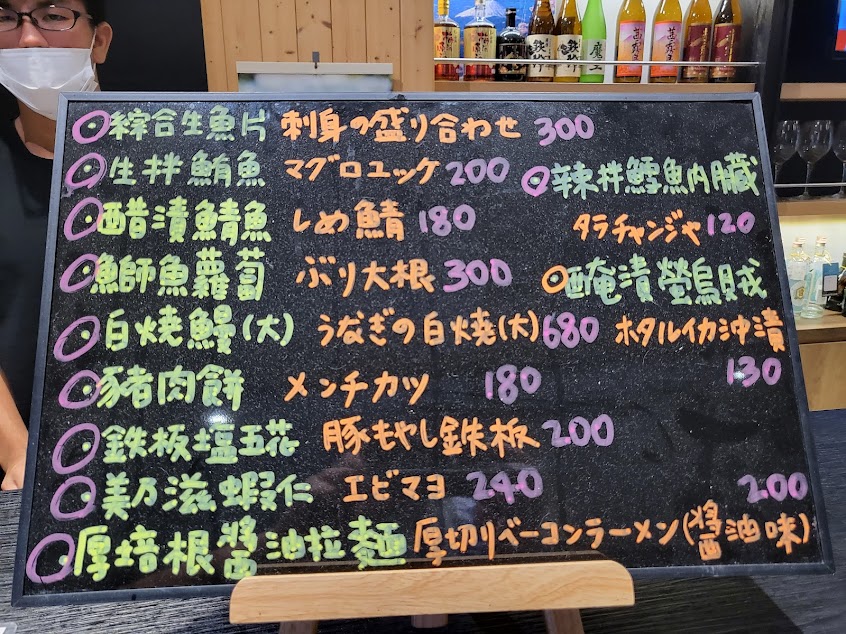 綜合生魚片 刺身の盛り合わせ 300
生拌鮪魚 マグロユッケ 200
辣拌鱈魚內臟
醋漬鯖魚 しめ鯖 180
タラチャンジャ 120
魚師魚蘿蔔 ぶり大根 300
醃漬螢烏賊
白焼鰻(大) うなぎの白焼(大) 680
ホタルイカ沖漬
130
豬肉餅 メンチカツ 180
鉄板塩五花 豚もやし鉄板 200
美乃滋蝦仁 エビマヨ 240
200
厚培根醬油拉麵 厚切りベーコンラーメン(醬油味)
魔王